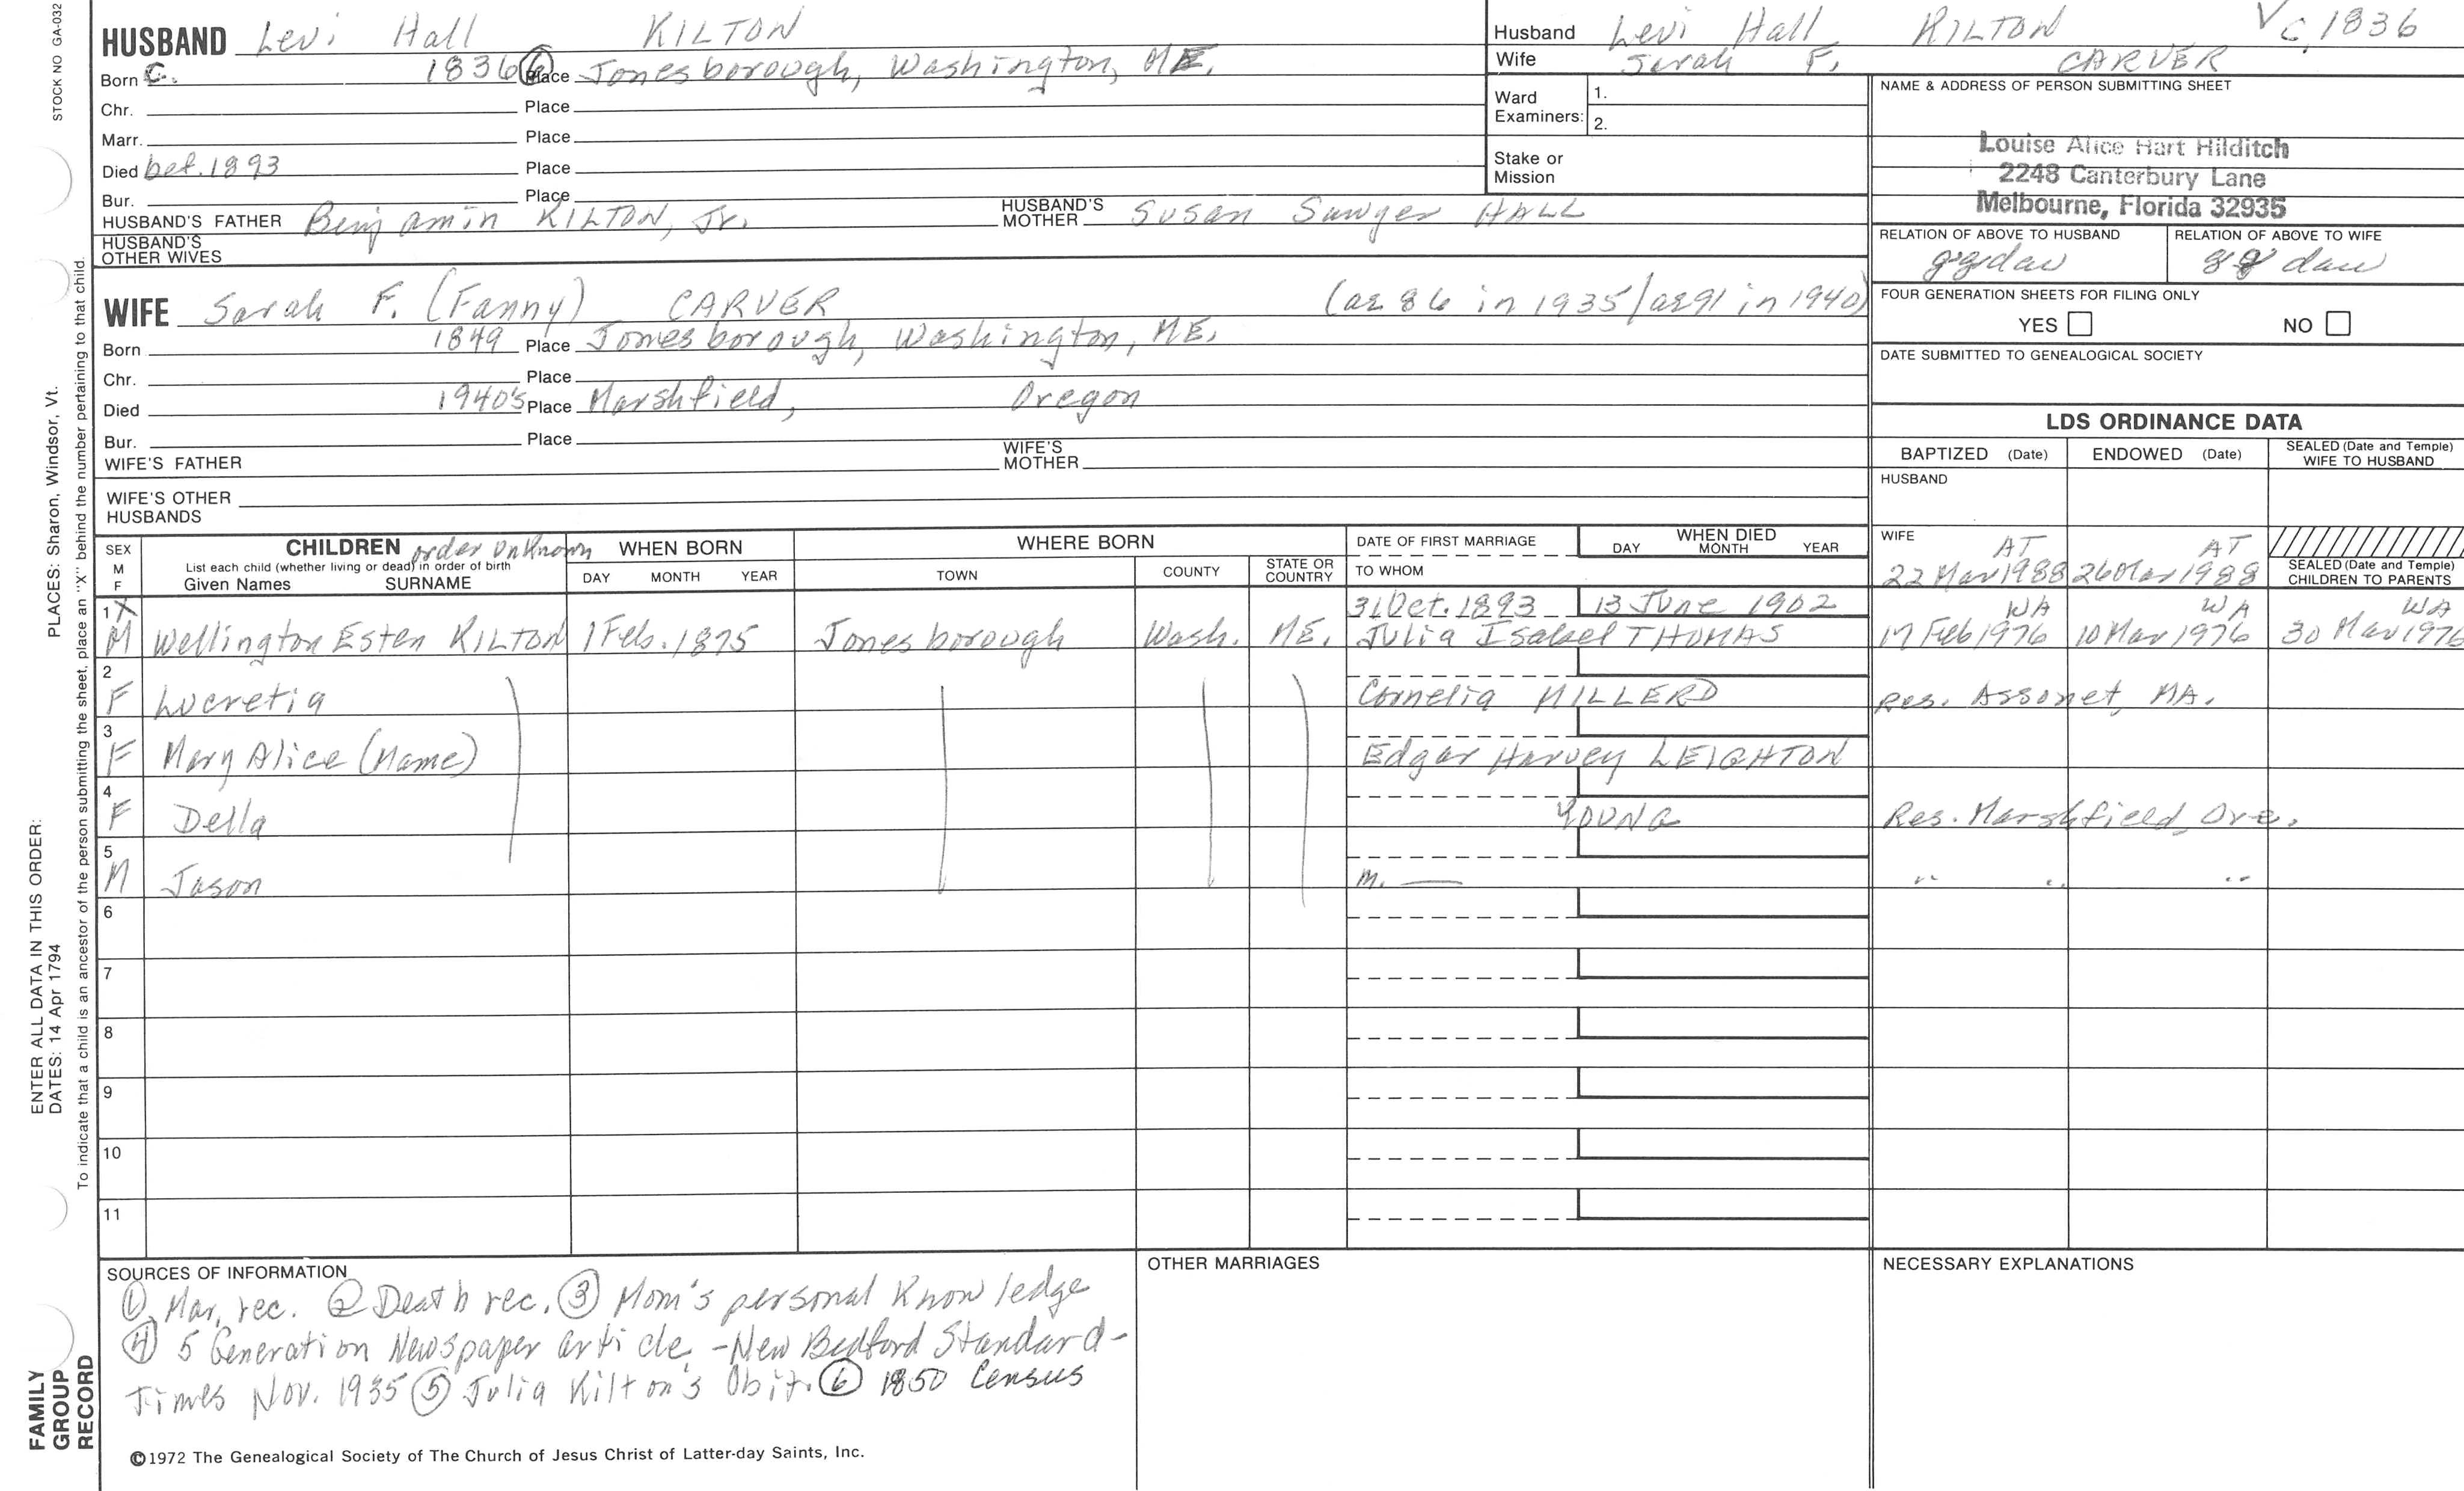 STOCK NO GA-032
HUSBAND Levi Hall KILTON
Born C. 1836 ⑥ Place Jonesborough, Washington, ME.
Chr. Place
Marr. Place
Died bef. 1893 Place
Bur. Place
HUSBAND'S FATHER Benjamin KILTON, Jr. HUSBAND'S MOTHER Susan Sawyer HALL
HUSBAND'S OTHER WIVES
Husband Levi Hall KILTON V c. 1836
Wife Sarah F. CARVER
Ward Examiners: 1.
2.
Stake or Mission
NAME & ADDRESS OF PERSON SUBMITTING SHEET
Louise Alice Hart Hilditch
2248 Canterbury Lane
Melbourne, Florida 32935
RELATION OF ABOVE TO HUSBAND RELATION OF ABOVE TO WIFE
ggdau gg dau
FOUR GENERATION SHEETS FOR FILING ONLY
YES NO
DATE SUBMITTED TO GENEALOGICAL SOCIETY
WIFE Sarah F. (Fanny) CARVER (ae 86 in 1935/ae 91 in 1940)
Born 1849 Place Jonesborough, Washington, ME.
Chr. Place
Died 1940's Place Marshfield, Oregon
Bur. Place
WIFE'S FATHER WIFE'S MOTHER
WIFE'S OTHER HUSBANDS
LDS ORDINANCE DATA
BAPTIZED (Date) ENDOWED (Date) SEALED (Date and Temple) WIFE TO HUSBAND
HUSBAND
WIFE AT AT
22 Mar 1988 26 Mar 1988
SEALED (Date and Temple) CHILDREN TO PARENTS
SEX M F
CHILDREN order unknown
List each child (whether living or dead) in order of birth
Given Names SURNAME
WHEN BORN
DAY MONTH YEAR
WHERE BORN
TOWN COUNTY STATE OR COUNTRY
DATE OF FIRST MARRIAGE
TO WHOM
WHEN DIED
DAY MONTH YEAR
1 X 31 Oct. 1893 13 June 1902 WA WA WA
M Wellington Esten KILTON 1 Feb. 1875 Jonesborough Wash. ME. Julia Isabel THOMAS 17 Feb 1976 10 Mar 1976 30 Mar 1976
2
F Lucretia Cornelia MILLERD Res. Assonet, MA.
3
F Mary Alice (Mame) Edgar Harvey LEIGHTON
4
F Della YOUNG Res. Marshfield, Ore.
5
M Jason m. — " " "
6
7
8
9
10
11
SOURCES OF INFORMATION
① Mar. rec. ② Death rec. ③ Mom's personal Knowledge
④ 5 Generation Newspaper article - New Bedford Standard-
Times Nov. 1935 ⑤ Julia Kilton's Obit. ⑥ 1850 Census
OTHER MARRIAGES
NECESSARY EXPLANATIONS
©1972 The Genealogical Society of The Church of Jesus Christ of Latter-day Saints, Inc.
ENTER ALL DATA IN THIS ORDER:
DATES: 14 Apr 1794
PLACES: Sharon, Windsor, Vt.
To indicate that a child is an ancestor of the person submitting the sheet, place an "X" behind the number pertaining to that child.
FAMILY
GROUP
RECORD